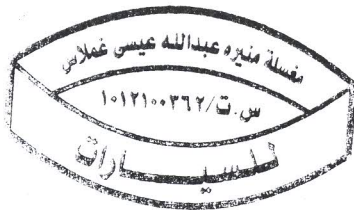 مغسلة منيره عبدالله عيسى غملاس
س.ت/١٠١٢١٠٠٣٦٢
للسيارات